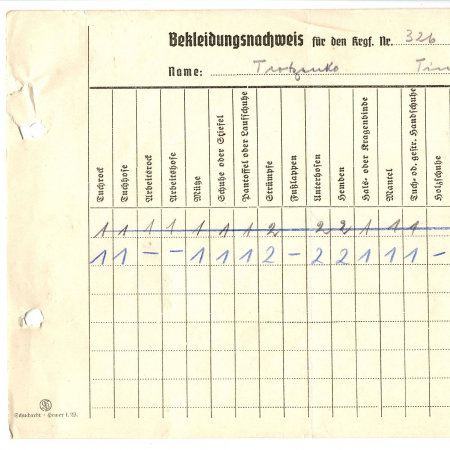 Bekleidungsnachweis für den Krgf. Nr. 326
Name: Trotzenko Tim
Tuchrock
Tuchhose
Arbeitsrock
Arbeitshose
Mütze
Schuhe oder Stiefel
Pantoffel oder Laufschuhe
Strümpfe
Fußlappen
Unterhosen
Hemden
Hals- oder Kragenbinde
Mantel
Tuch- od. gestr. Handschuhe
Holzschuhe
1 1 1 1 1 1 1 2 2 2 1 1 1
1 1 – – 1 1 1 2 – 2 2 1 1 1 –
Schuchardt - Hemer i. W.